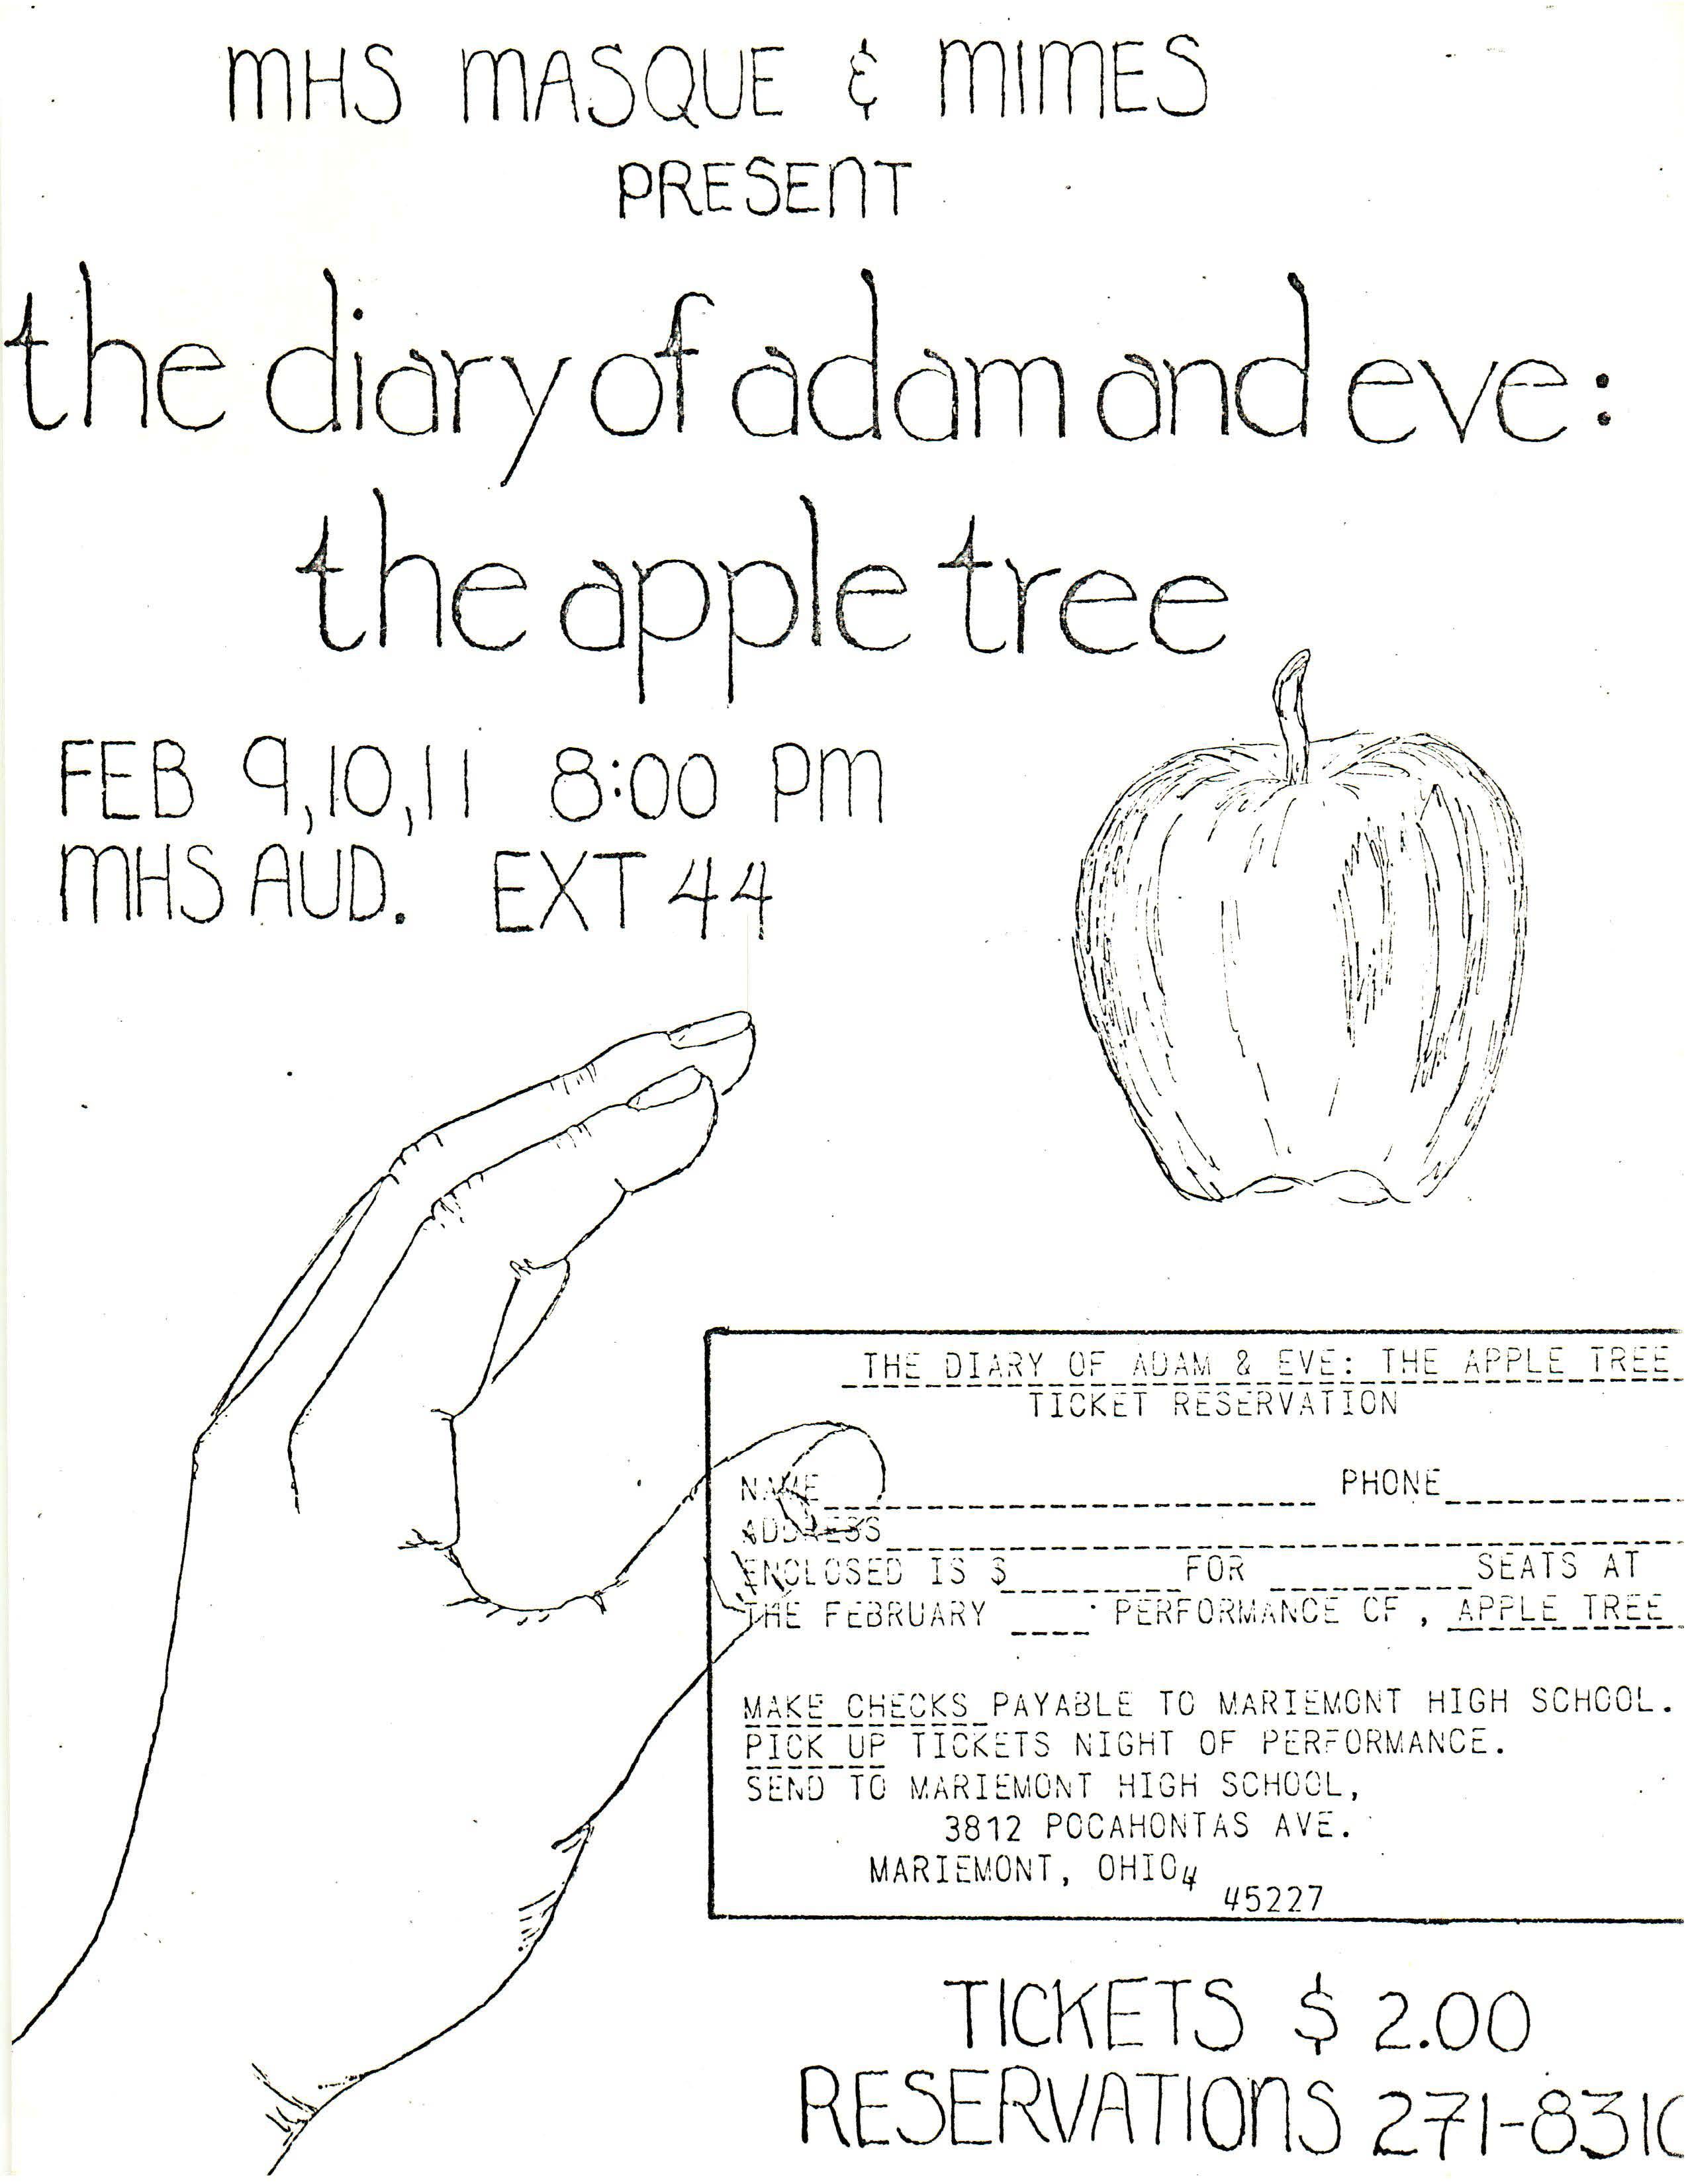 MHS MASQUE & MIMES
PRESENT
the diary of adam and eve:
the apple tree
FEB 9,10,11 8:00 PM
MHS AUD. EXT 44
THE DIARY OF ADAM & EVE: THE APPLE TREE
TICKET RESERVATION
NAME PHONE
ADDRESS
ENCLOSED IS $ FOR SEATS AT
THE FEBRUARY PERFORMANCE OF, APPLE TREE
MAKE CHECKS PAYABLE TO MARIEMONT HIGH SCHOOL.
PICK UP TICKETS NIGHT OF PERFORMANCE.
SEND TO MARIEMONT HIGH SCHOOL,
3812 POCAHONTAS AVE.
MARIEMONT, OHIO 4
45227
TICKETS $2.00
RESERVATIONS 271-8310